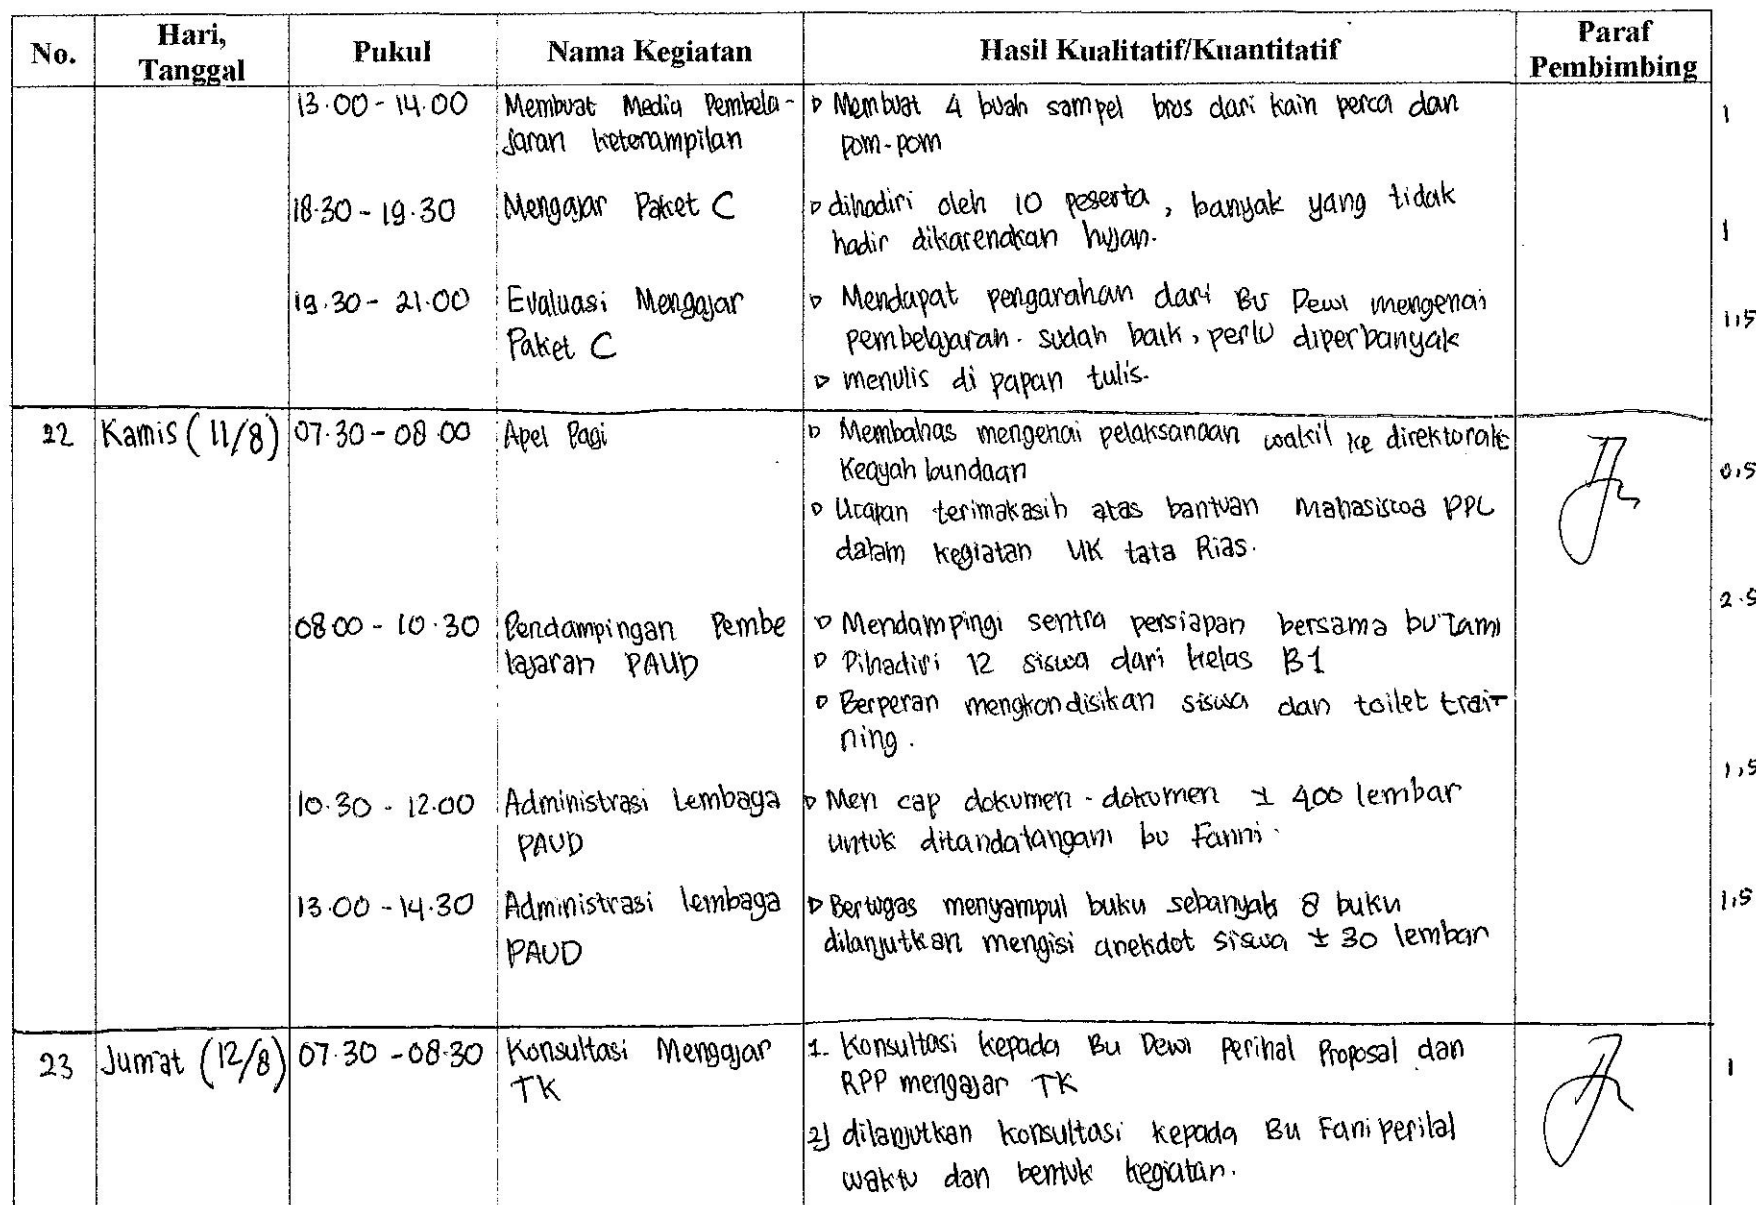 No. Hari, Tanggal Pukul Nama Kegiatan Hasil Kualitatif/Kuantitatif Paraf Pembimbing
13.00 - 14.00 Membuat Media Pembela- ▷ Membuat 4 buah sampel bros dari kain perca dan 1
jaran keterampilan pom-pom
18.30 - 19.30 Mengajar Paket C ▷ dihadiri oleh 10 peserta, banyak yang tidak
hadir dikarenakan hujan. 1
19.30 - 21.00 Evaluasi Mengajar ▷ Mendapat pengarahan dari Bu Dewi mengenai 1,5
Paket C pembelajaran. sudah baik, perlu diperbanyak
▷ menulis di papan tulis.
22 Kamis (11/8) 07.30 - 08.00 Apel Pagi ▷ Membahas mengenai pelaksanaan wakil ke direktorat
Keayah bundaan 0,5
▷ Ucapan terimakasih atas bantuan Mahasiswa PPL
dalam kegiatan UK tata Rias.
08.00 - 10.30 Pendampingan Pembe ▷ Mendampingi sentra persiapan bersama bu 2.5
lajaran PAUD ▷ Dihadiri 12 siswa dari kelas B1
▷ Berperan mengkondisikan siswa dan toilet trai-
ning.
10.30 - 12.00 Administrasi Lembaga ▷ Men cap dokumen - dokumen ± 400 lembar 1,5
PAUD untuk ditandatangani bu Fanni.
13.00 - 14.30 Administrasi lembaga ▷ Bertugas menyampul buku sebanyak 8 buku 1,5
PAUD dilanjutkan mengisi anekdot siswa ± 30 lembar
23 Jum'at (12/8) 07.30 - 08.30 Konsultasi Mengajar 1. Konsultasi kepada Bu Dewi Perihal Proposal dan 1
TK RPP mengajar TK
2) dilanjutkan konsultasi kepada Bu Fani perilal
waktu dan bentuk kegiatan.